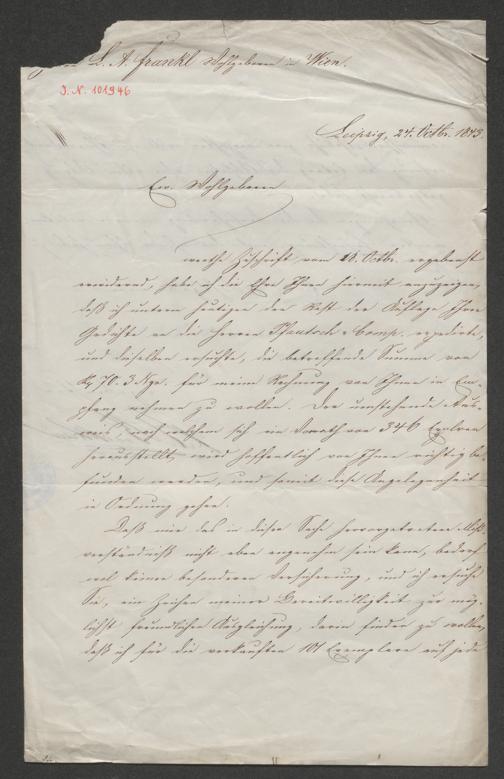 L. A. Frankl Wohlgeboren in Wien.
I. N. 101946
Leipzig, 24. Octbr. 1843.
Ew. Wohlgeboren
werthe Zuschrift vom 18. Octbr. ergebenst
erwidernd, habe ich die Ehre Ihnen hiermit anzuzeigen,
daß ich unterm heutigen den Rest der Auflage Ihrer
Gedichte an die Herren Pfautsch & Comp. expedirte,
und dieselben ersuchte, die betreffende Summe von
70. 3 Ngr. für meine Rechnung von Ihnen in Em-
pfang nehmen zu wollen. Der umstehende Aus-
weis, nach welchem sich ein Vorrath von 346 Explren
herausstellt, wird hoffentlich von Ihnen richtig be-
funden werden, und somit diese Angelegenheit
in Ordnung gehen.
Daß mir das in dieser Sache hervorgetretene Miß-
verständniß nicht eben angenehm sein kann, bedarf
wol keiner besonderen Versicherung, und ich ersuche
Sie, ein Zeichen meiner Bereitwilligkeit zur mög-
lichst freundlichen Ausgleichung, darin finden zu wollen,
daß ich für die verkauften 101 Exemplare auf jede